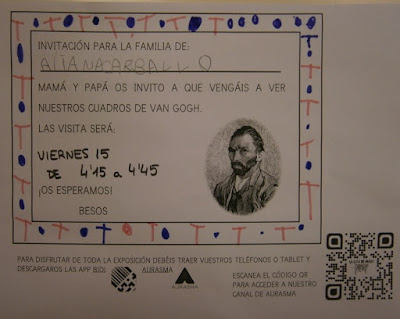 INVITACIÓN PARA LA FAMILIA DE:
AITANA CARBALLO
MAMÁ Y PAPÁ OS INVITO A QUE VENGÁIS A VER
NUESTROS CUADROS DE VAN GOGH.
LAS VISITA SERÁ:
VIERNES 15
DE 4'15 a 4'45
¡OS ESPERAMOS!
BESOS
PARA DISFRUTAR DE TODA LA EXPOSICIÓN DEBÉIS TRAER VUESTROS TELÉFONOS O TABLET Y
DESCARGAROS LAS APP BIDI AURASMA
AURASMA
ESCANEA EL CÓDIGO QR
PARA ACCEDER A NUESTRO
CANAL DE AURASMA